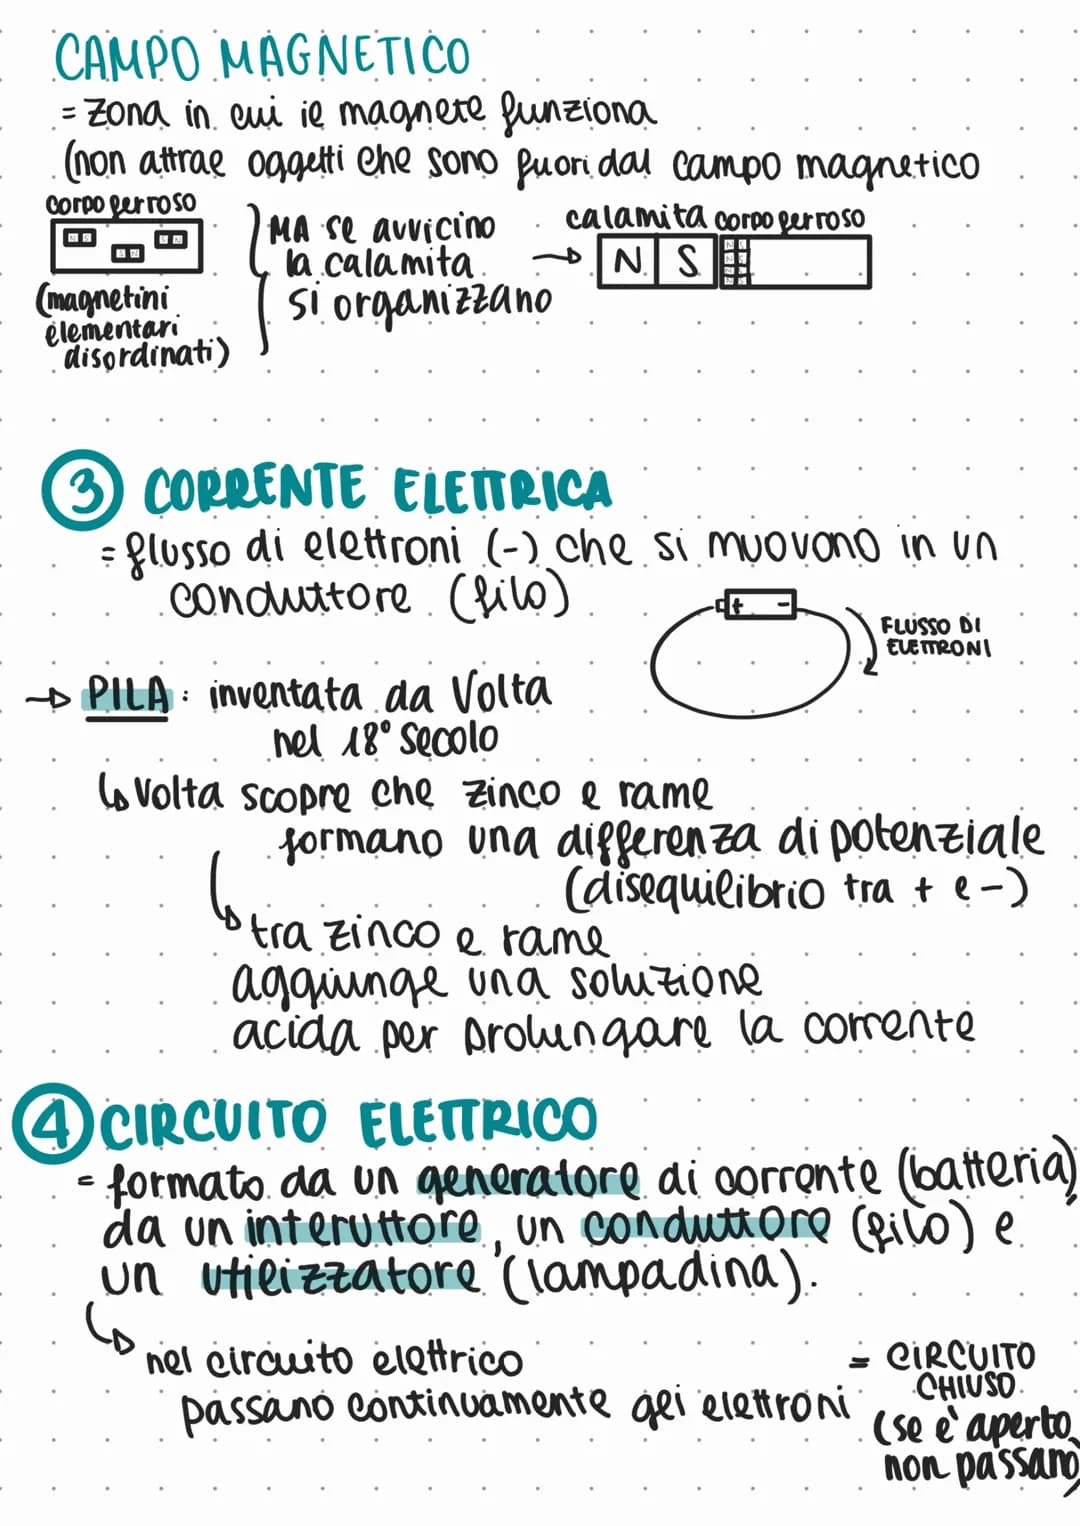 CAMPO MAGNETICO
= Zona in cui il magnete funziona
(non attrae oggetti che sono fuori dal campo magnetico
corpo ferroso
N S
S N
S N
(magnetini
elementari
disordinati)
MA se avvicino
la calamita
si organizzano
calamita corpo ferroso
N S
3 CORRENTE ELETTRICA
= flusso di elettroni (-) che si muovono in un
conduttore (filo)
+ -
FLUSSO DI
ELETTRONI
PILA: inventata da Volta
nel 18° Secolo
Volta scopre che zinco e rame
formano una differenza di potenziale
(disequilibrio tra + e -)
tra zinco e rame
aggiunge una soluzione
acida per prolungare la corrente
4 CIRCUITO ELETTRICO
= formato da un generatore di corrente (batteria),
da un interuttore, un conduttore (filo) e
un utilizzatore (lampadina).
nel circuito elettrico
passano continuamente gli elettroni
= CIRCUITO
CHIUSO
(se è aperto
non passano)